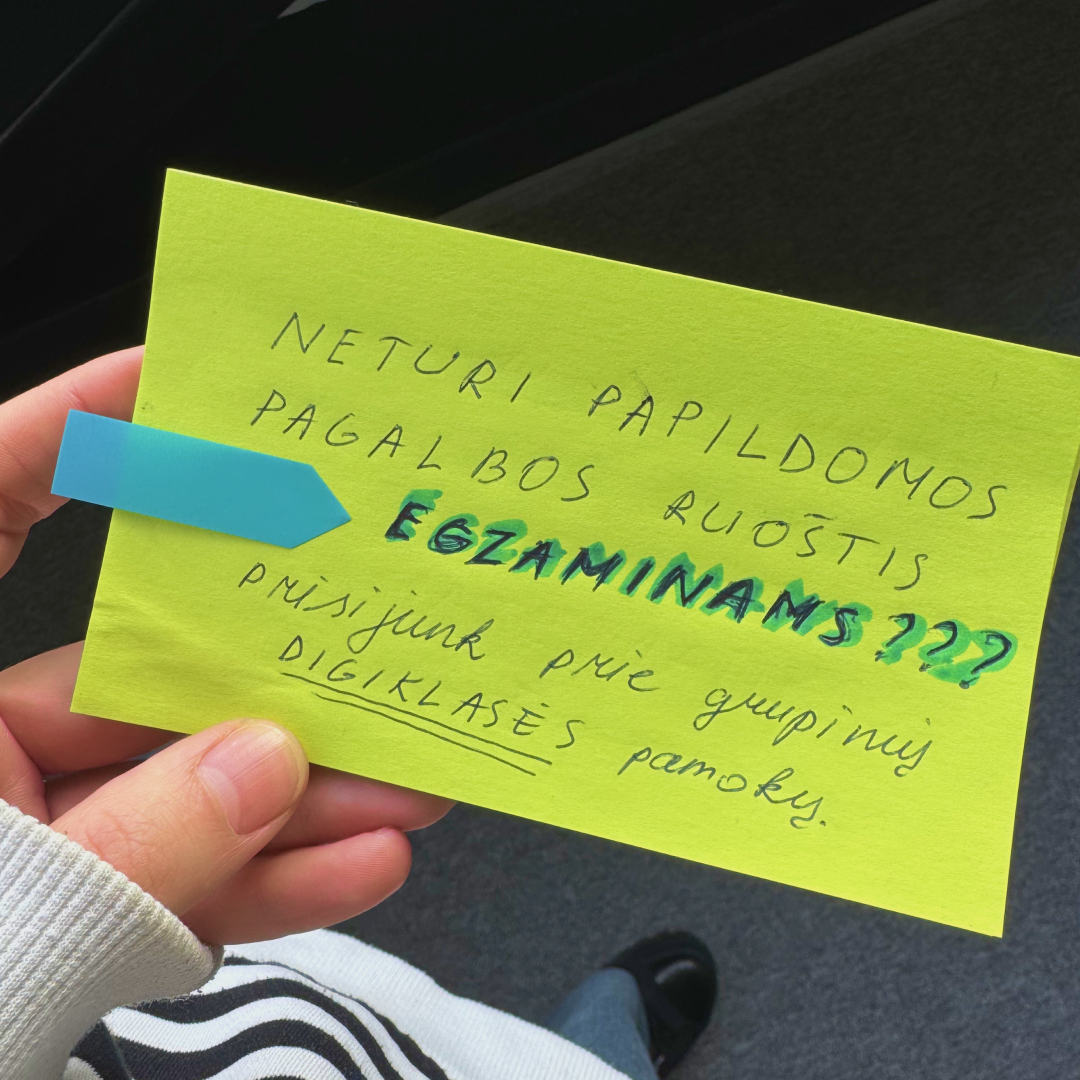 NETURI PAPILDOMOS
PAGALBOS RUOŠTIS
EGZAMINAMS???
prisijunk prie grupinių
DIGIKLASĖS pamokų.